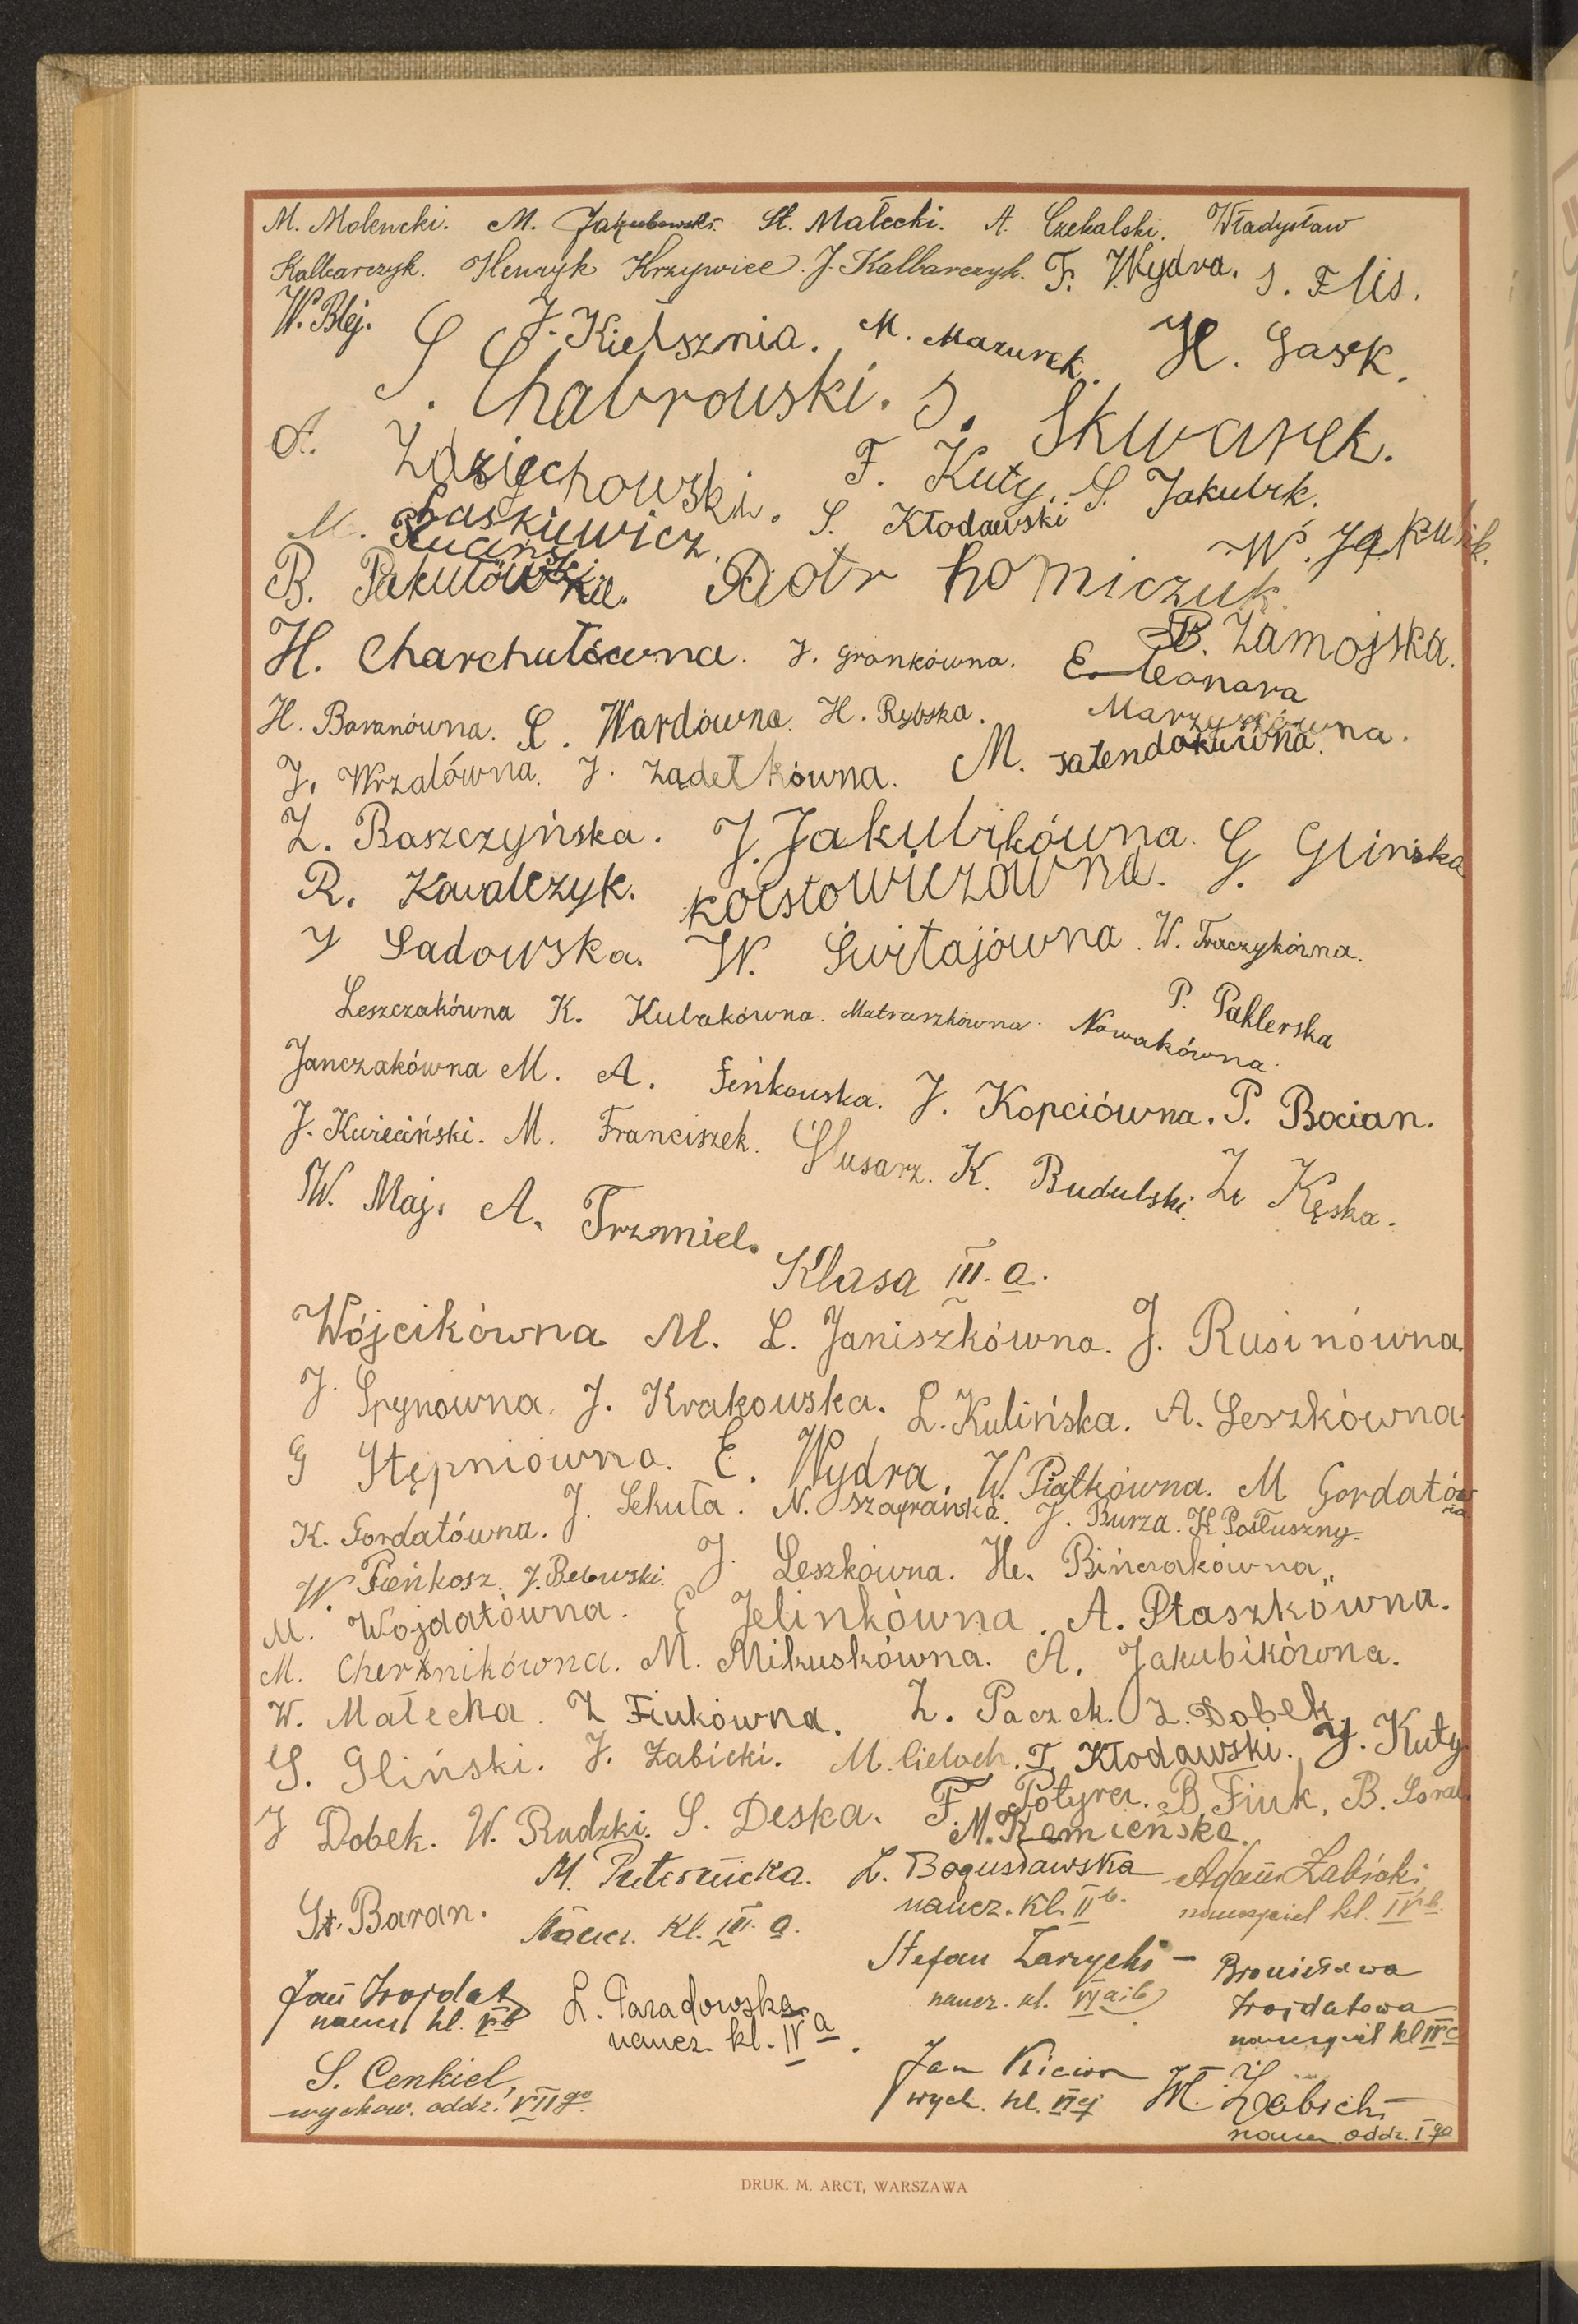 M. Molencki. M. Jakubowski. St. Małecki. A. Czekalski. Władysław
Kalbarczyk. Henryk Krzywice. J. Kalbarczyk. F. Wydra. S. Flis.
W. Blej. J. Kiełsznia. M. Mazurek. H. Gasek.
S. Chabrowski. S. Skwarek.
A. Zdziechowski. F. Kuty. S. Jakubik.
M. Łaskiewicz. S. Kłodawski W. Jakubik.
Ruciński.
B. Pakułowska. Piotr Homiczuk.
H. Charchutówna. J. Gronkówna. B. Zamojska.
E. Leonara
H. Baranówna. L. Wardówna. H. Rybska. Marzyszówna.
J. Wrzalówna. J. Żądełkówna. M. Jatendakówna.
Z. Baszczyńska. J. Jakubikówna. G. Glińska
R. Kowalczyk. Kostowiczówna. G.
J Sadowska. W. Świtajówna. W. Traczykówna.
Leszczakówna K. Kubakówna. Matraszkówna. Nowakówna. P. Pahlerska
Janczakówna M. A. Feńkowska. J. Kopciówna. P. Bocian.
J. Kwieciński. M. Franciszek. Ślusarz. K. Budulski. Z. Kęska.
W. Maj. A. Trzmiel.
Klasa III. a.
Wójcikówna M. L. Janiszkówna. J. Rusinówna.
J. Spynowna. J. Krakowska. L. Kulińska. A. Leszkówna
G Stępniówna. E. Wydra. W. Piątkówna. M. Gordatówna
K. Gordatówna. J. Sekuła. N. Szafrańska. J. Burza. K. Posłuszny.
W. Fieńkosz. J. Belowski. J. Leszkówna. He. Bińczakówna.
M. Wojdatówna. E Jelinkówna. A. Ptaszkówna.
M. Chernikówna. M. Mikuskówna. A. Jakubikówna.
W. Małecka. Z Fiukówna. Z. Paczek. Z. Dobek.
S. Gliński. J. Żabicki. M. Cieloch. T. Kłodawski. J. Kuty.
J Dobek. W. Rudzki. S. Deska. F. Potyra. B. Fiuk. B.
M. Kamieńska.
M. L. Bogusławska Adam Żabicki
St. Baran. Naucz. kl. III. a. naucz. kl. II b. nauczyciel kl. IV b.
Stefan Zarzycki – Bronisława
Jan Wojdat L. Paradowska naucz. kl. VI a i b Wojdatowa
naucz. kl. V b naucz. kl. IV a nauczyciel kl IV c
S. Cenkiel, Jan Kicior W. Żabicki
wychow. oddz. VII go. wych. kl. VI ej naucz. oddz. I go
DRUK. M. ARCT, WARSZAWA